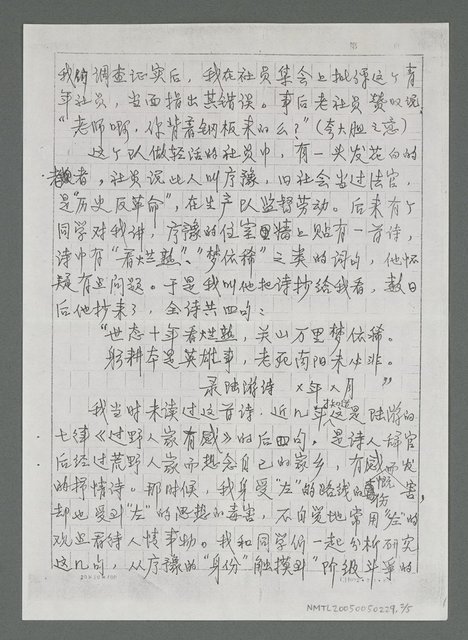 我们调查证实后，我在社员集会上批评这个青
年社员，当面指出其错误。事后老社员赞叹说
"老师啊，你背着钢板来的么？"（夸大胆之意）
这个队做轻活的社员中，有一头发花白的
老者，社员说此人叫序豫，旧社会当过法官，
是"历史反革命"，在生产队监督劳动。后来有个
同学对我讲，序豫的住室里墙上贴有一首诗，
诗中有"看烂熟"、"梦依稀"之类的词句，他怀
疑有点问题。于是我叫他把诗抄给我看，数日
后他抄来了，全诗共四句：
"世态十年看烂熟，关山万里梦依稀。
躬耕本是英雄事，老死南阳未必非。
录陆游诗 ×年×月"
我当时未读过这首诗，近几年才知道这是陆游的
七律《过野人家有感》的后四句，是诗人辞官
后经过荒野人家而想念自己的家乡，有感而发
的抒情诗。那时候，我身受"左"的路线的 害，
却也受到"左"的思想的毒害，不自觉地常用"左"的
观点看待人情事物。我和同学们一起分析研究
这几句，从序豫的"身份"触摸到"阶级斗争的
NMTL20050050229. 3/5